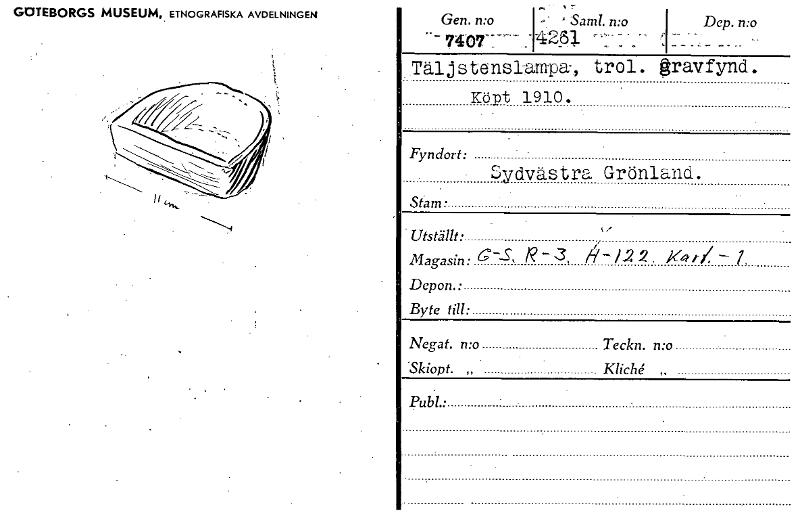 GÖTEBORGS MUSEUM, ETNOGRAFISKA AVDELNINGEN
11 cm
Gen. n:o Saml. n:o Dep. n:o
7407 4261
Täljstenslampa, trol. gravfynd.
Köpt 1910.
Fyndort:
Sydvästra Grönland.
Stam:
Utställt:
Magasin: G-S. R-3. H-122. Kart. - 1.
Depon.:
Byte till:
Negat. n:o Teckn. n:o
Skiopt. „ Kliché „
Publ.: